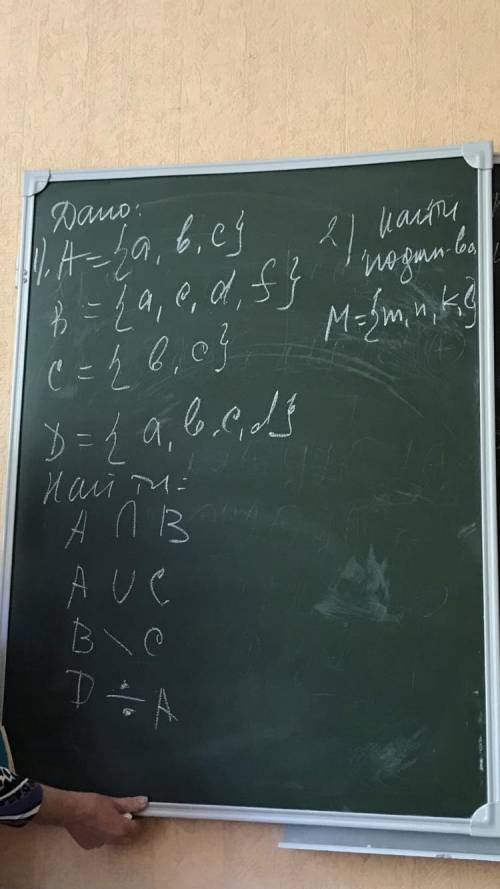 Дано:
1). A = {a, b, c}
B = {a, c, d, f}
C = {b, c}
D = {a, b, c, d}
Найти:
A ∩ B
A ∪ C
B \ C
D ÷ A
2) Найти
подмн-ва
M = {m, n, k, l}